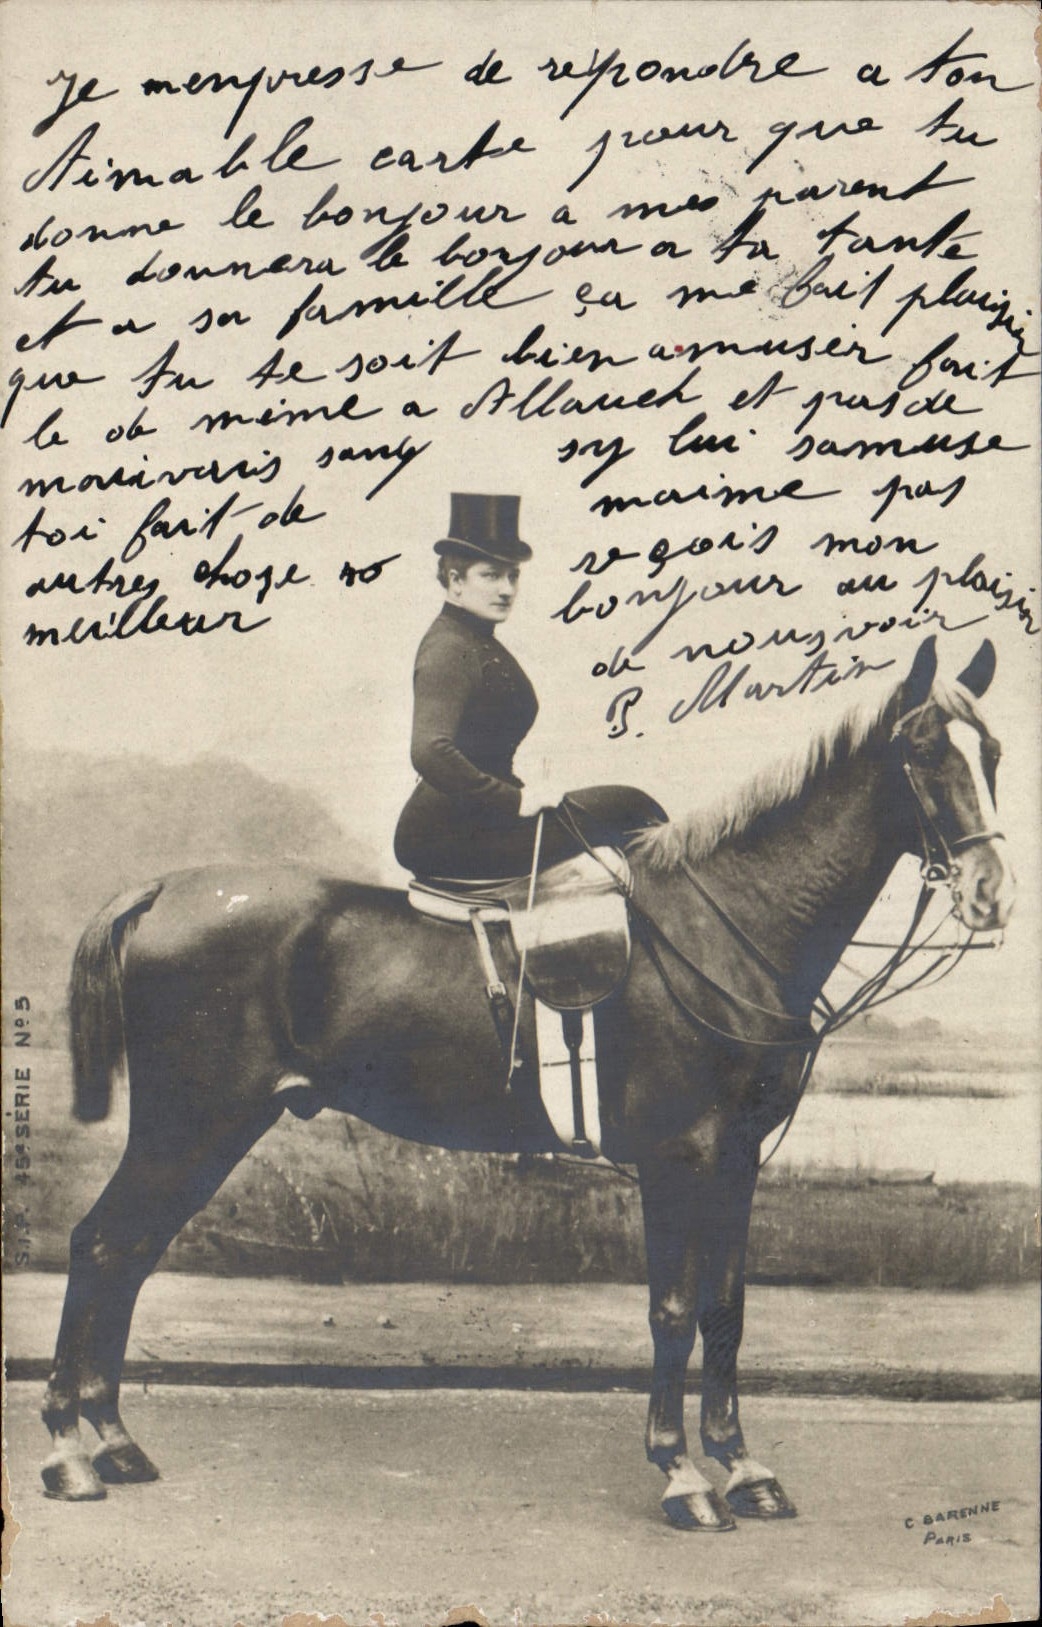 Je menpresse de repondre a ton
Aimable carte pour que tu
donne le bonjour a mes parent
tu donnera le bonjour a ta tante
et a sa famille ça me fait plaisir
que tu te soit bien amuser fait
le de même a Allauch et pas de
mauivais sang
toi fait de
autres choze
meilleur
sy lui samuse
maime pas
reçois mon
bonjour au plaisir
de nous voir
P. Martin
S.I.P. 45e SÉRIE No 5
C BARENNE
PARIS